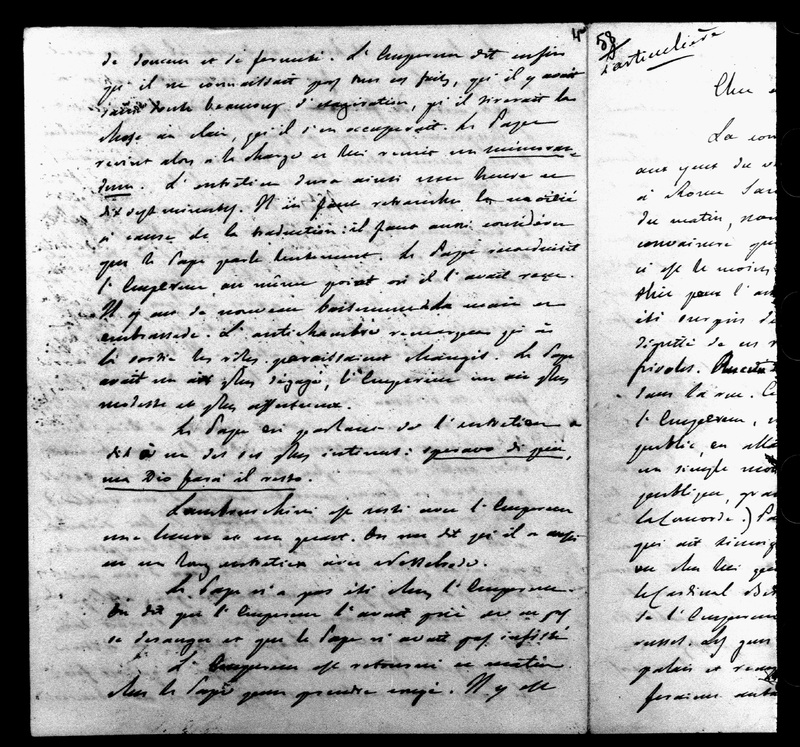 4
de douceur et de fermeté. L'Empereur dit enfin
qu'il ne connaissait pas tous ces faits, qu'il y avait
sans doute beaucoup d'exagération, qu'il tirerait la
chose au clair, qu'il s'en occuperait. Le Pape
revint alors à la charge et lui remit un memoran-
dum. L'entretien dura ainsi une heure et
dix sept minutes. Il en faut retrancher la moitié
à cause de la traduction: il faut aussi considérer
que le Pape parle lentement. Le Pape reconduisit
l'Empereur au même point où il l'avait reçu.
Il y eut de nouveau baisement de la main et
embrassade. L'antichambre remarqua qu'à
la sortie les rôles paraissaient changés. Le Pape
avait un air plus dégagé, l'Empereur un air plus
modeste et plus affectueux.
Le Pape en parlant de l'entretien a
dit à un de ses plus intimes: speravo di più,
ma Dio farà il resto.
Lambruschini est resté avec l'Empereur
une heure et un quart. On me dit qu'il a aussi
eu un long entretien avec Nesselrode.
Le Pape n'a pas été chez l'Empereur.
On dit que l'Empereur l'avait prié de ne pas
se déranger et que le Pape n'avait pas insisté
L'Empereur est retourné ce matin
chez le Pape pour prendre congé. Il y est
58
Particulière
Cher
La
aux yeux du
à Rome
du matin,
convaincre que
ci est le moins
pour l'
été surpris de
député de
frivoles.
dans la rue.
l'Empereur,
public, en
un simple
publique,
la Concorde.)
qui ait
chez lui
le Cardinal
de l'Empereur
russes. Les gens
palais et